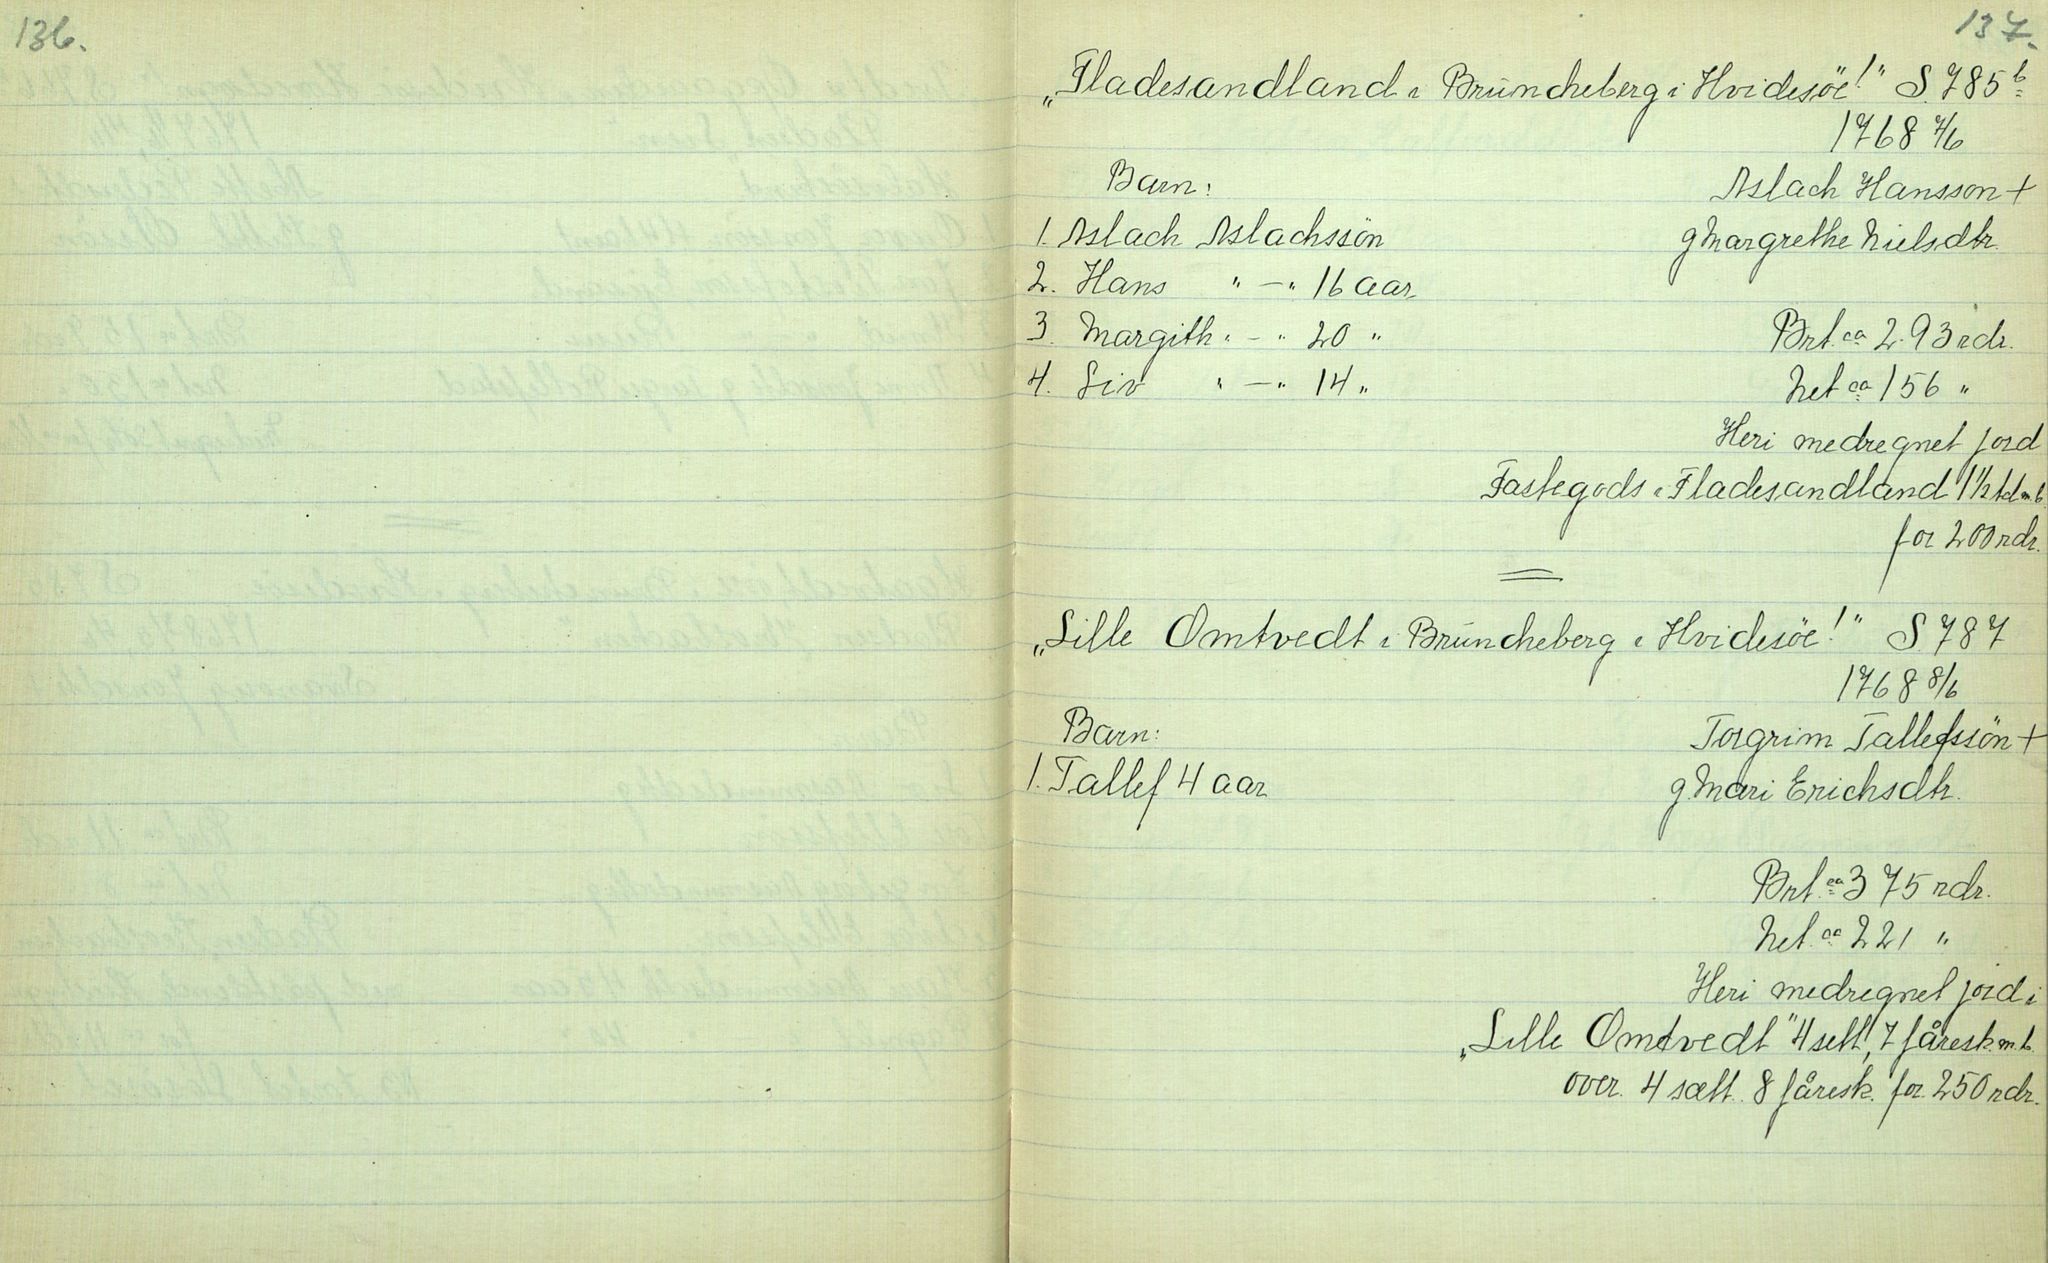 136.
137.
„Fladesandland i Brúncheberg i Hvidesöe!" S. 785 b
1768 7/6
Barn:
Aslach Hansson +
1. Aslach Aslachssön
g Margrethe Nielsdtr.
2. Hans " — " 16 aar
3. Margith " — " 20 "
Brt. ca 293 rdr.
4. Liv " — " 14 "
Net ca 156 "
Heri medregnet jord
Fastegods i Fladesandland 1½ td m.b.
for 200 rdr.
„Lille Omtvedt i Brúncheberg i Hvidesöe!" S. 787
1768 8/6
Barn:
Torgrim Tallefssön +
1. Tallef 4 aar
g. Mari Erichsdtr.
Brt. ca 375 rdr.
Net. ca 221 "
Heri medregnet jord i
„Lille Omtvedt" 4 sett, 7 fåresk. m.b.
over. 4 sætt. 8 fåresk. for. 250 rdr.